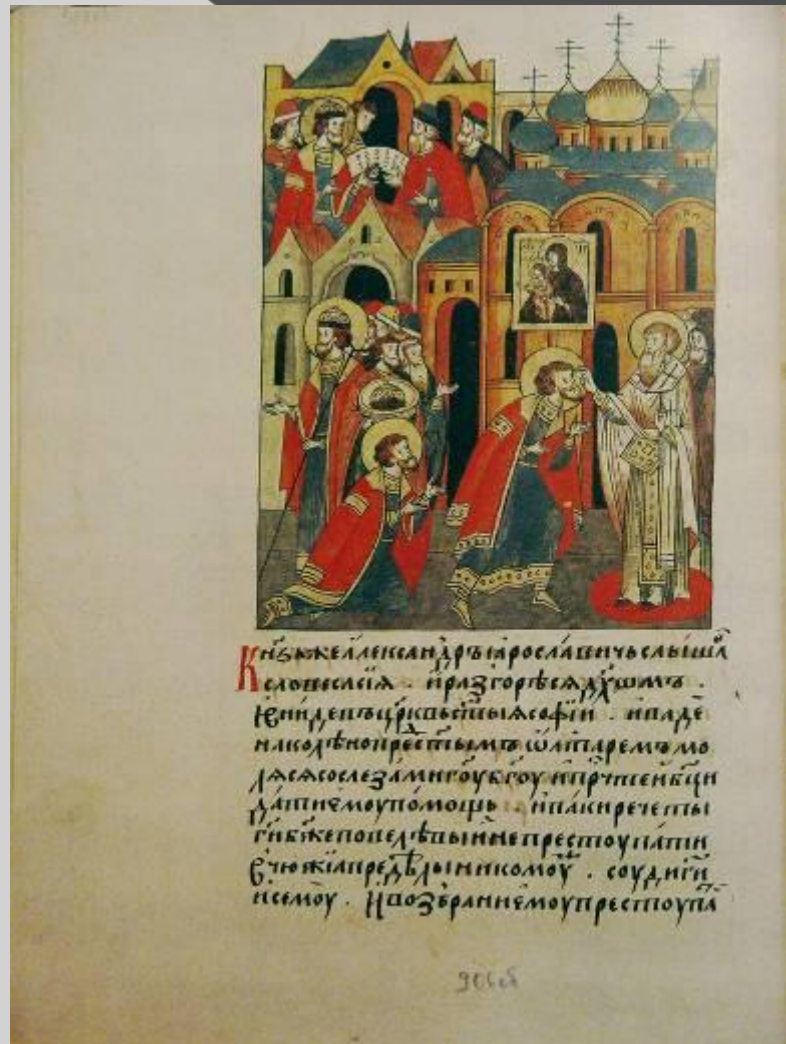 Кн҃зь же Алеѯандръ Ꙗрославичь слыша
словеса сїя . и разгорѣся дх҃омъ .
и вниде въ црк҃вь ст҃ыя софїи . и паде
на колѣно пре ст҃ымъ ѡлтаремъ мо
ляся со слезами гоу бг҃оу и прч҃тей бц҃и
дати ємоу помощь . и паки рече ты
ги бж҃е повелѣвый не престоупати
в чюжїа предѣлы никомоу . соуди ги
и семоу . и возбрани ємоу престоупа